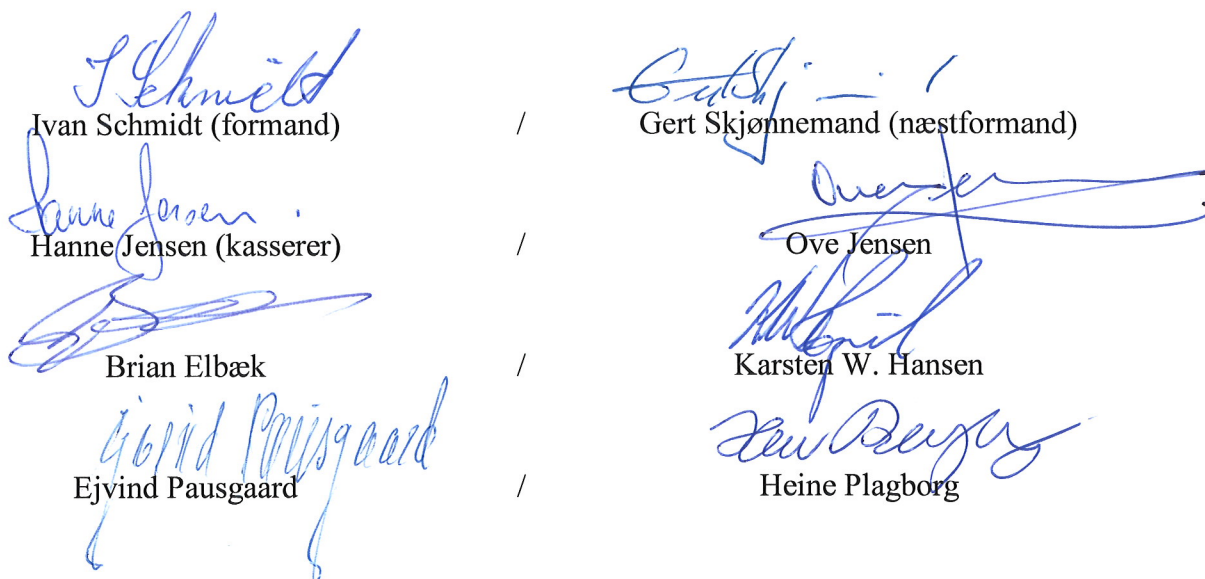 I Schmidt
Ivan Schmidt (formand) / Gert Skjønnemand (næstformand)
Hanne Jensen
Hanne Jensen (kasserer) / Ove Jensen
Brian Elbæk / Karsten W. Hansen
Ejvind Pausgaard
Ejvind Pausgaard / Heine Plagborg